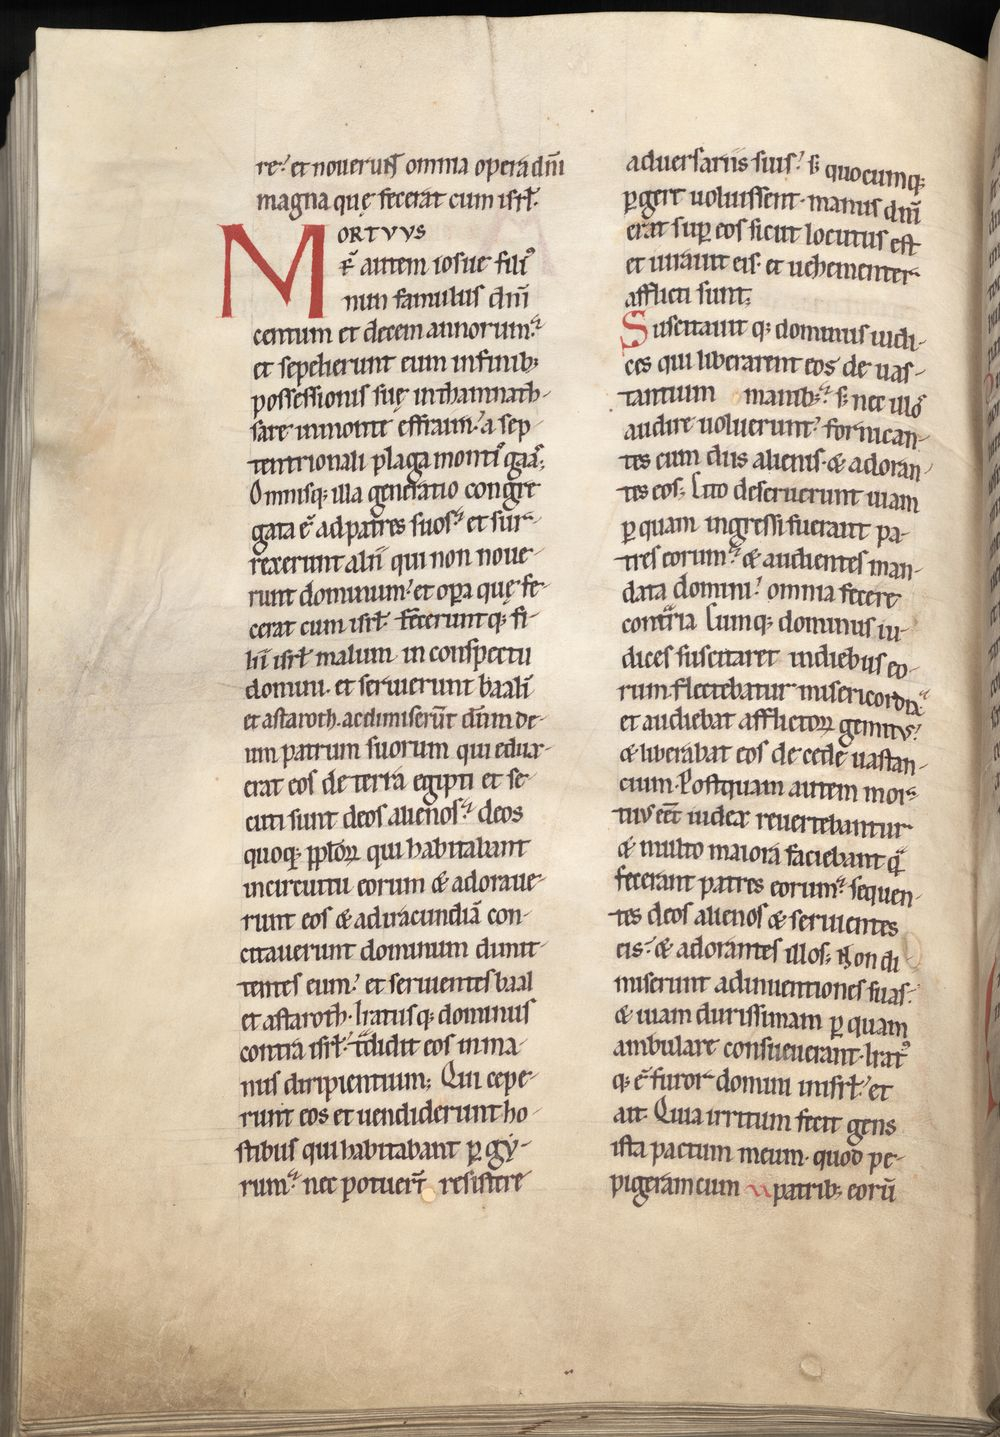 re. et nouerunt omnia opera dñi
magna quę fecerat cum isrł.
MORTVVS
ē autem iosue filiꝰ
nun famulus dñi
centum et decem annorum.
et sepelierunt eum in finibꝫ
possessionis suę in thamnath-
sare in monte effraim. a sep-
tentrionali plaga montis gaas;
Omnisqꝫ illa generatio congre
gata ē ad patres suos. et sur-
rexerunt alii qui non noue-
runt dominum. et oꝑa quę fe-
cerat cum isrł. feceruntqꝫ fi-
lii isrł malum in conspectu
domini. et seruierunt baali
et astaroth. ac dimiserūt dūm de-
um patrum suorum qui edux-
erat eos de terra egipti et se-
cuti sunt deos alienos. deos
quoqꝫ ppłoꝝ qui habitabant
in circuitu eorum & adoraue-
runt eos & ad iracundiā con-
citauerunt dominum dimit-
tentes eum. et seruientes baal
et astaroth. Iratusqꝫ dominus
contra isrł. tᵃdidit eos in ma-
nus diripientium; Qui cepe-
runt eos et uendiderunt ho-
stibus qui habitabant ꝑ gẏ-
rum. nec potuert̄ resistere
aduersariis suis. s; quocumqꝫ
ꝑgere uoluissent. manus dñi
erat suꝑ eos sicut locutus est
et iurauit eis. et uehementer
afflicti sunt;
Suscitauitqꝫ dominus iudi-
ces qui liberarent eos de uas-
tantium manibꝫ. s; nec illos
audire uoluerunt. fornican-
tes cum diis alienis. & adoran-
tes eos; Cito deseruerunt uiam
ꝑ quam ingressi fuerant pa-
tres eorum. & audientes man-
data domini. omnia fecere
contᵃria Cumqꝫ dominus iu-
dices suscitaret in diebus eo-
rum flectebatur misericordia
et audiebat afflictoꝝ gemitus.
& liberabat eos de cede uastan-
cium. Postquam autem mor-
tuus eēt iudex reuertebantur
& multo maiora faciebant qᵃ
fecerant patres eorum. sequen-
tes deos alienos & seruientes
eis. & adorantes illos; Non di
miserunt adinuentiones suas.
& uiam durissimam ꝑ quam
ambulare consueuerant. Iratꝰ
qꝫ ē furor domini in isrł. et
ait. Quia irritum fecit gens
ista pactum meum. quod pe-
pigeram cum patribꝫ eorū